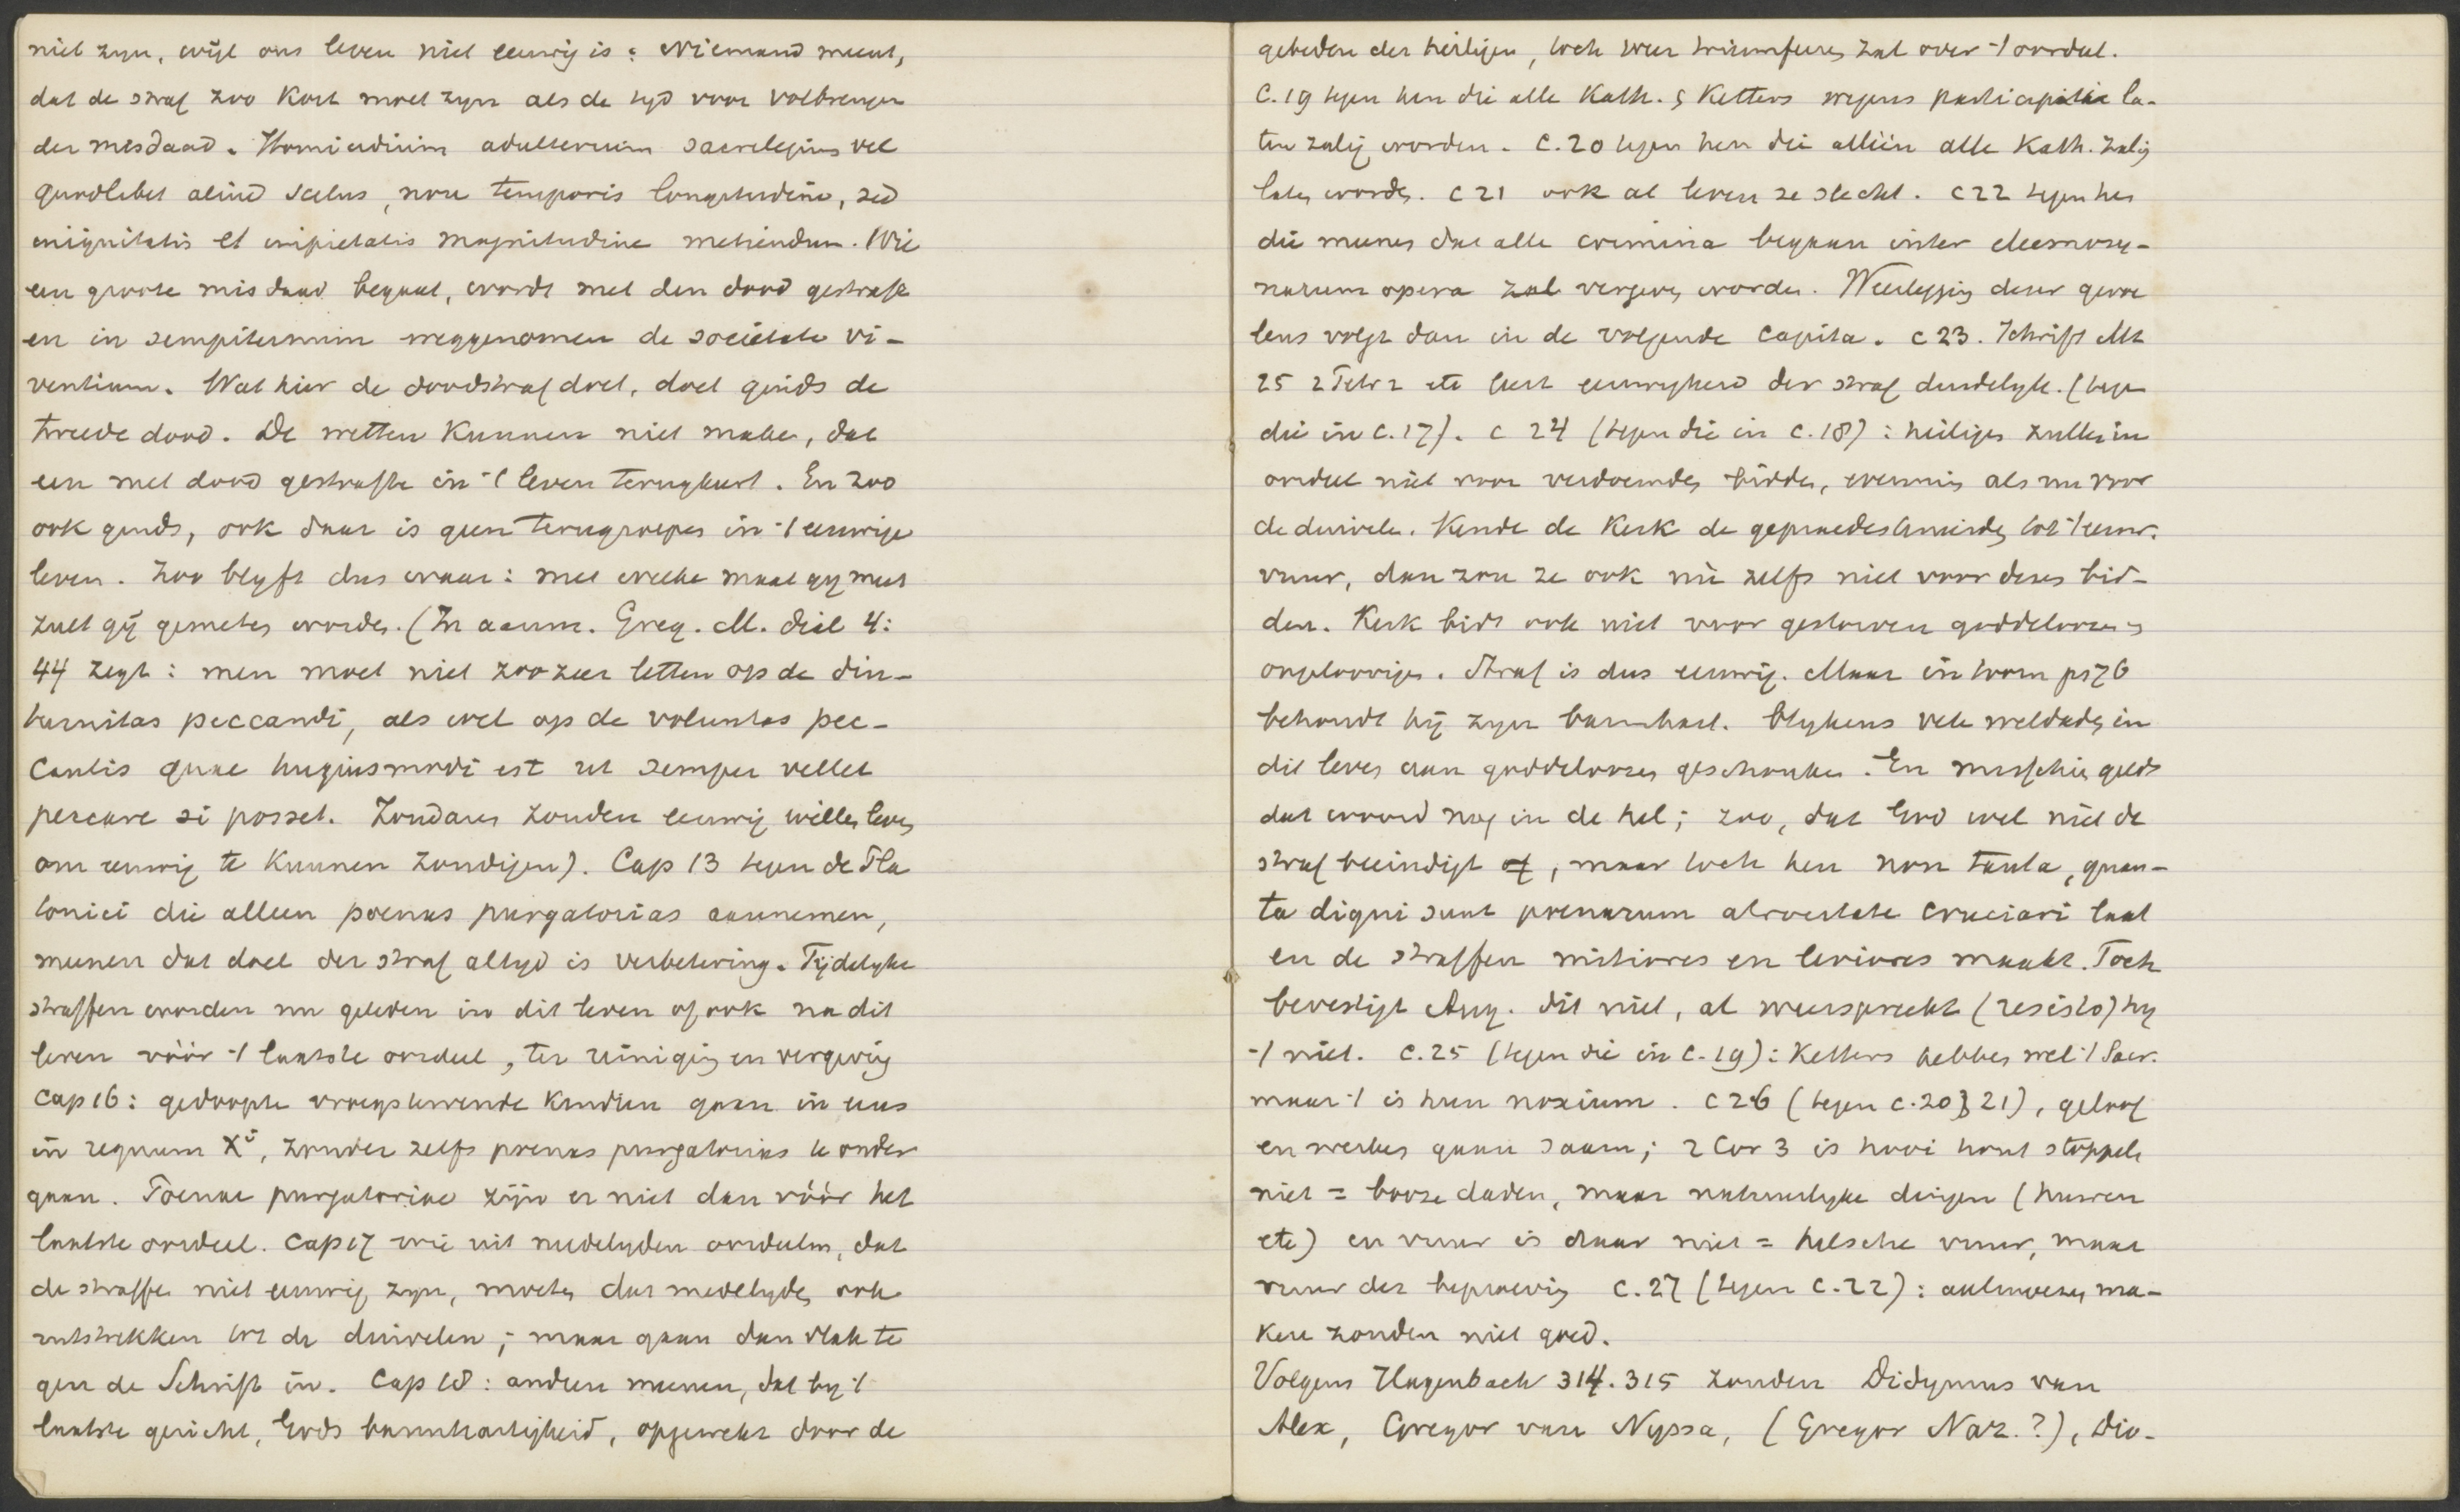 niet zyn, wijl ons leven niet eeuwig is: Niemand meent,
dat de straf zoo kort moet zyn als de tyd voor volbrengen
der misdaad. Homicidium adulterium sacrilegium vel
quodlibet aliud scelus, non temporis longitudine, sed
iniquitatis et impietatis magnitudine metiendum. Wie
een groote misdaad begaat, wordt met den dood gestraft
en in sempiternum weggenomen de societate vi-
ventium. Wat hier de doodstraf doet, doet ginds de
tweede dood. De wetten kunnen niet maken, dat
een met dood gestrafte in 't leven terugkeert. En zoo
ook ginds, ook daar is geen terugroepen in 't eeuwige
leven. Zoo blyft dus waar: met welke maat gy meet
zult gij gemeten worden. (In aanm. Greg. M. dial 4:
44 zegt: men moet niet zoozeer letten op de diu-
turnitas peccandi, als wel op de voluntas pec-
cantis quae hujusmodi est ut semper vellet
peccare si posset. Zondaren zouden eeuwig willen leven
om eeuwig te kunnen zondigen). Cap 13 tegen de Pla
tonici die alleen poenas purgatorias aannemen,
meenen dat doel der straf altyd is verbetering. Tijdelyke
straffen worden nu geleden in dit leven of ook na dit
leven vóór 't laatste oordeel, ter reiniging en vergeving
Cap 16: gedoopte vroegstervende kindren gaan in eens
in regnum Xi, zonder zelfs poenas purgatorias te onder
gaan. Poenae purgatoriae zijn er niet dan vóór het
laatste oordeel. Cap 17 wie uit medelyden oordeelen, dat
de straffen niet eeuwig zyn, moeten dat medelyden ook
uitstrekken tot de duivelen; maar gaan dan vlak te
gen de Schrift in. Cap 18: andren meenen, dat by 't
laatste gericht, Gods barmhartigheid, opgewekt door de
gebeden der heiligen, toch weer triumfeeren zal over 't oordeel.
C. 19 tegen hen die alle Kath. & Ketters wegens participatie la-
ten zalig worden. C. 20 tegen hen die alléén alle Kath. zalig
laten worden. C 21 ook al leven ze slecht. C 22 tegen hen
die meenen dat alle crimina begaan inter eleemosy-
narum opera zal vergeven worden. Weerlegging dezer gevoe
lens volgt dan in de volgende capita. C 23. Schrift Mt
25 2 Petr 2 etc leert eeuwigheid der straf duidelyk. (tegen
die in C. 17). C 24 (tegen die in C. 18): heiligen zullen in
oordeel niet voor verdoemden bidden, evenmin als nu voor
de duivelen. Kende de Kerk de gepraedestineerden tot 't eeuw.
vuur, dan zou ze ook nú zelfs niet voor dezen bid-
den. Kerk bidt ook niet voor gestorven goddeloozen &
ongeloovigen. Straf is dus eeuwig. Maar in toorn ps 76
behoudt hij zyn barmhart. blykens vele weldaden in
dit leven aan goddeloozen geschonken. En misschien geldt
dat woord nog in de hel; zoo, dat God wel niet de
straf beëindigt of, maar toch hen non tanta, quan-
ta digni sunt poenarum atrocitate cruciari laat
en de straffen mitiores en leviores maakt. Toch
bevestigt Aug. dit niet, al weerspreekt (resisto) hy
't niet. C. 25 (tegen die in C. 19): Ketters hebben wel 't Sacr.
maar 't is hun noxium. C 26 (tegen C. 20 & 21), geloof
en werken gaan saam; 2 Cor 3 is hooi hout stoppelen
niet = booze daden, maar natuurlyke dingen (huwen
etc) en vuur is daar niet = helsche vuur, maar
vuur der beproeving C. 27 (tegen C. 22): aalmoezen ma-
ken zonden niet goed.
Volgens Hagenbach 314. 315 zouden Didymus van
Alex, Gregor van Nyssa, (Gregor Naz.?), Dio-